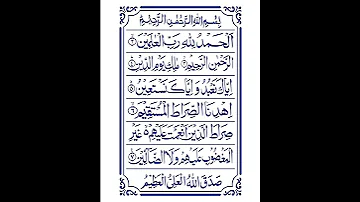 بِسْمِ اللهِ الرَّحْمٰنِ الرَّحِيْمِ
اَلْحَمْدُ لِلّٰهِ رَبِّ الْعٰلَمِيْنَ ١
الرَّحْمٰنِ الرَّحِيْمِ ٢ مٰلِكِ يَوْمِ الدِّيْنِ ٣
اِيَّاكَ نَعْبُدُ وَاِيَّاكَ نَسْتَعِيْنُ ٥
اِهْدِنَا الصِّرَاطَ الْمُسْتَقِيْمَ ٦
صِرَاطَ الَّذِيْنَ اَنْعَمْتَ عَلَيْهِمْ غَيْرِ
الْمَغْضُوْبِ عَلَيْهِمْ وَلَا الضَّآلِّيْنَ ٧
صَدَقَ اللهُ الْعَلِيُّ الْعَظِيْمُ